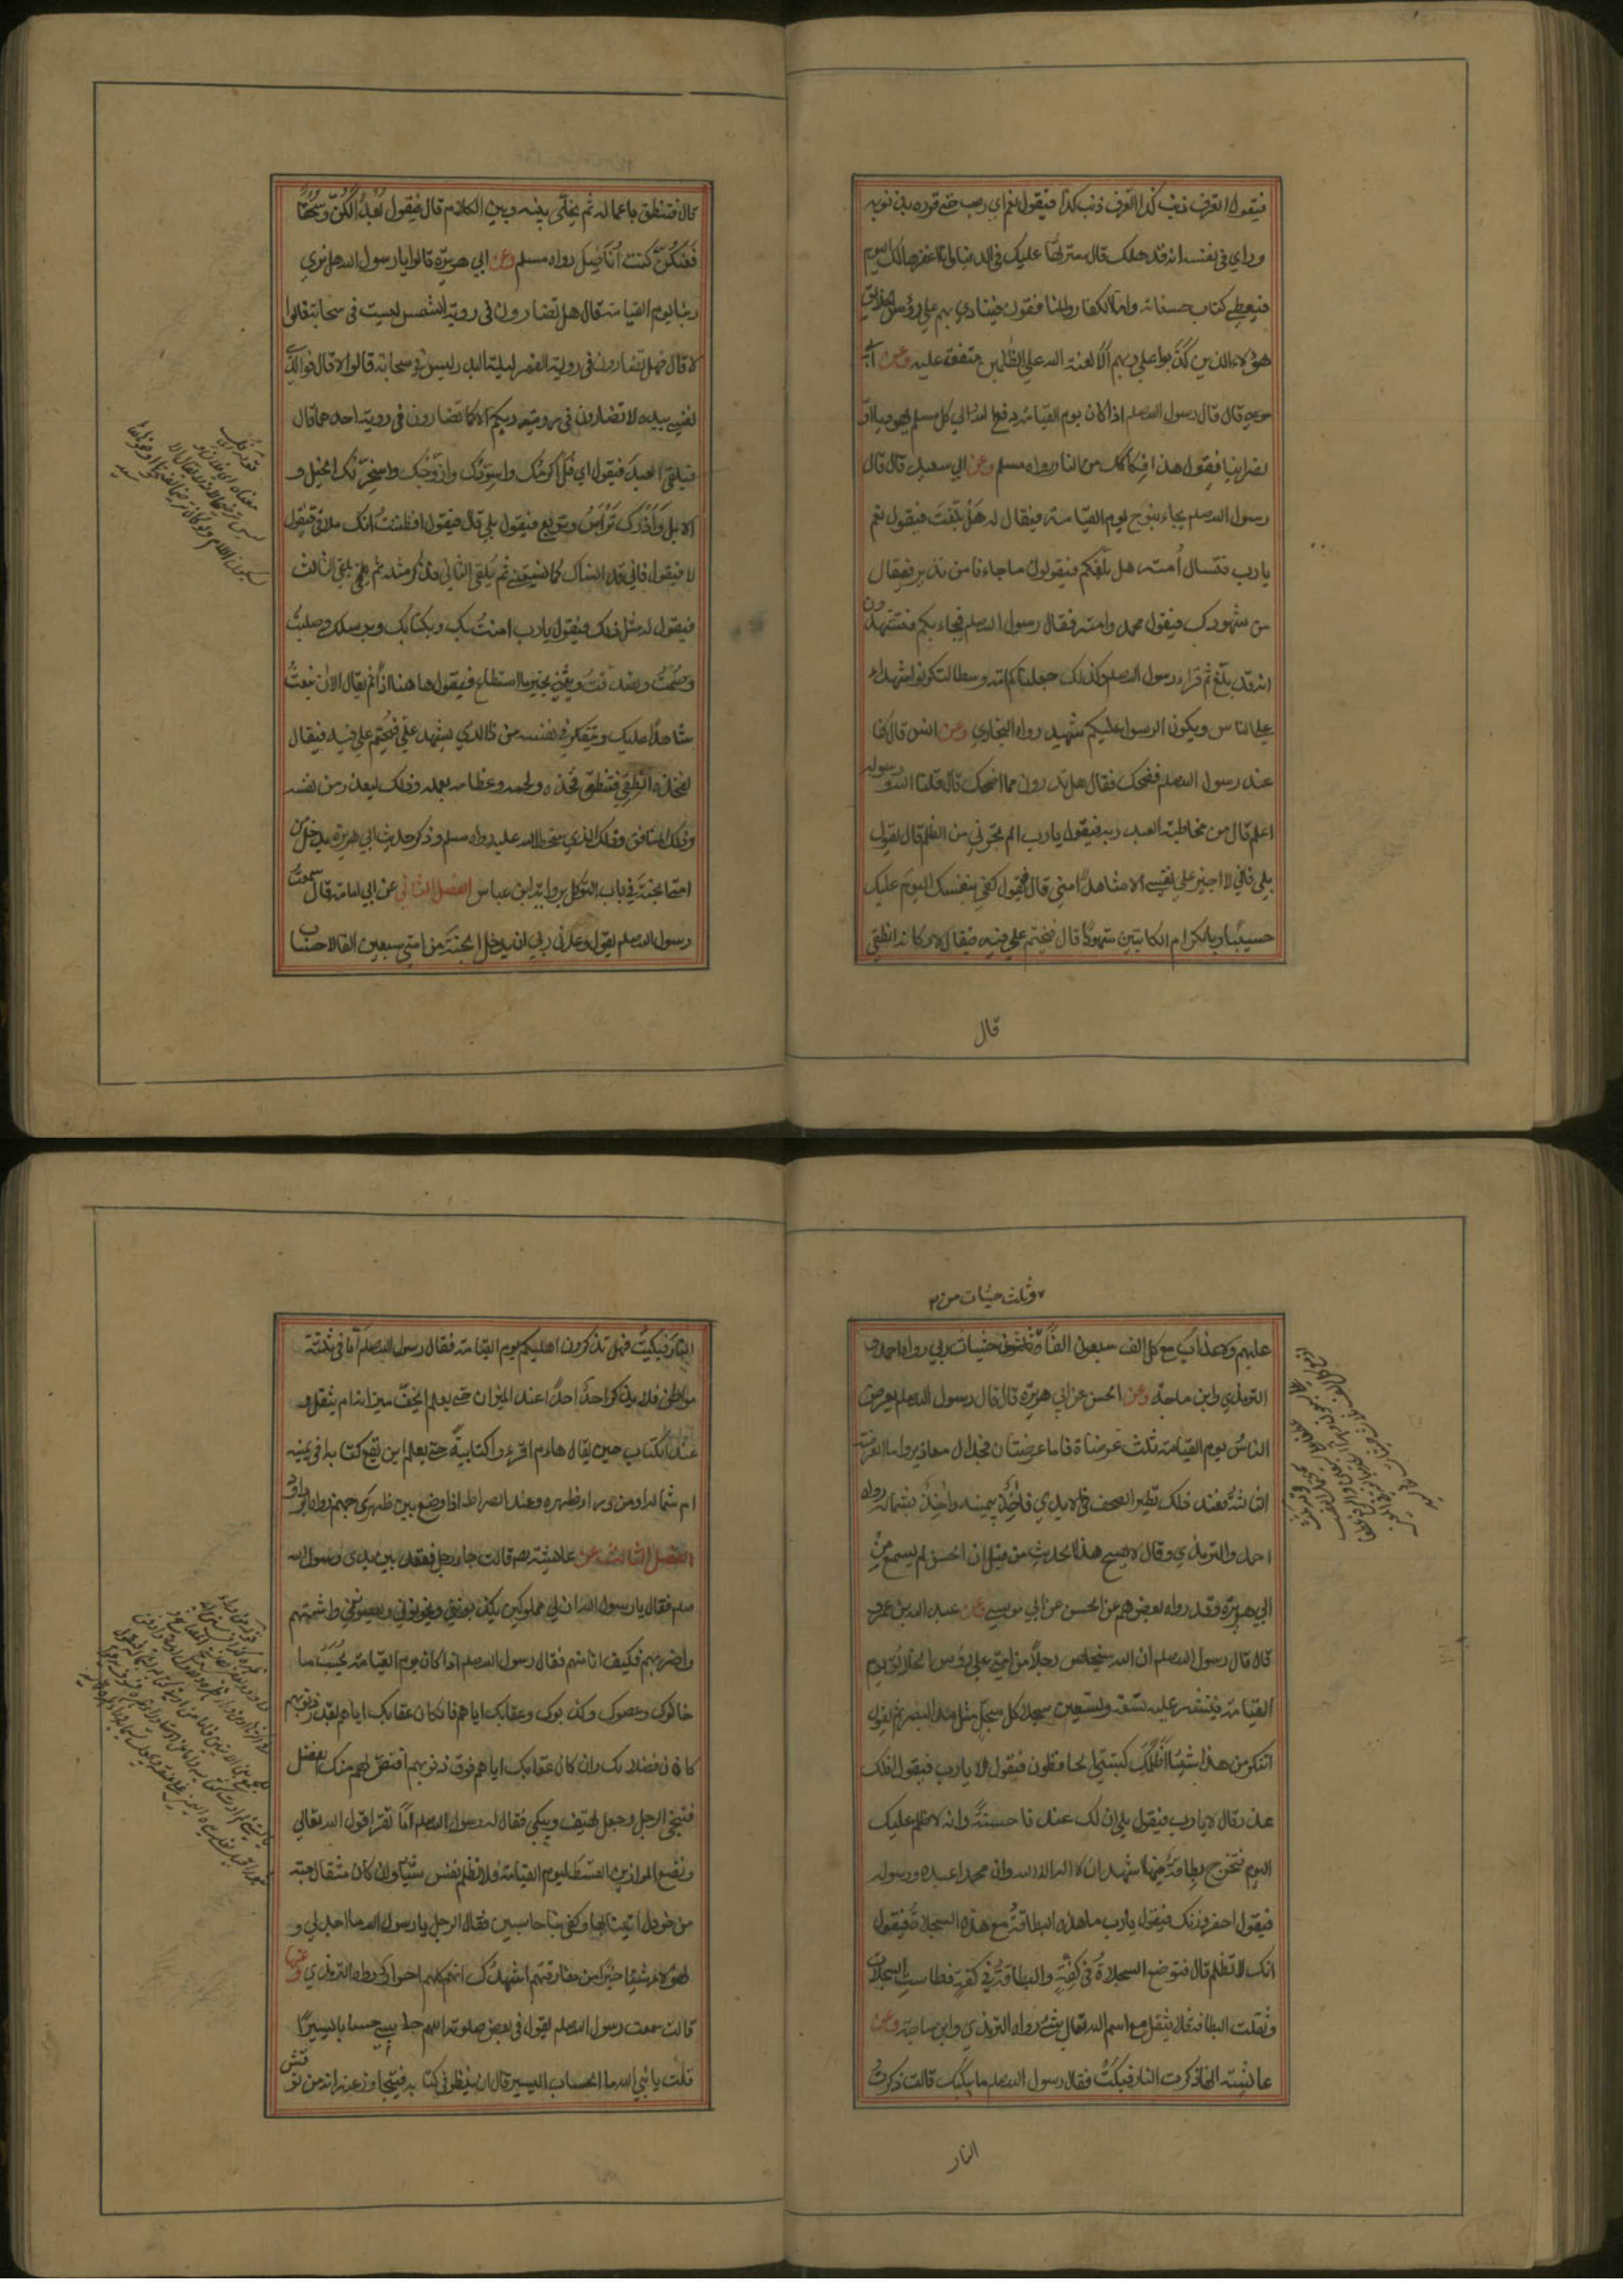 فيقول اتعرف ذنب كذا اتعرف ذنب كذا فيقول نعم اي رب حتي قرره بذنوبه
وراي في نفسه انه قد هلك قال سترتها عليك في الدنيا وانا اغفرها لك اليوم
فيعطي كتاب حسناته واما الكفار والمنافقون فينادي بهم علي رؤس الخلايق
هؤلاء الذين كذبوا علي ربهم الا لعنة الله علي الظلمين متفق عليه وعن ابي
موسي قال قال رسول الله صلعم اذا كان يوم القيامة دفع الله الي كل مسلم يهوديا او
نصرانيا فيقول هذا فكاكك من النار رواه مسلم وعن ابي سعيد قال قال
رسول الله صلعم يجاء بنوح يوم القيامة فيقال له هل بلغت فيقول نعم
يا رب فتسال امته هل بلغكم فيقولون ما جاءنا من نذير فيقال
من شهودك فيقول محمد وامته فقال رسول الله صلعم فيجاء بكم فتشهدون
انه قد بلغ ثم قراء رسول الله صلعم وكذلك جعلناكم امة وسطا لتكونوا شهداء
علي الناس ويكون الرسول عليكم شهيد رواه البخاري وعن انس قال كنا
عند رسول الله صلعم فضحك فقال هل تدرون مما اضحك قال قلنا الله ورسوله
اعلم قال من مخاطبة العبد ربه فيقول يا رب الم تجرني من الظلم قال يقول
بلي قال فاني لا اجيز علي نفسي الا شاهدا مني قال فيقول كفي بنفسك اليوم عليك
حسيبا وبالكرام الكاتبين شهودا قال فيختم علي فيه فيقال لاركانه انطقي
قال
قال فتنطق باعماله ثم يخلي بينه وبين الكلام قال فيقول بعدا لكن وسحقا
فعنكن كنت اناضل رواه مسلم وعن ابي هريرة قالوا يا رسول الله هل نري
ربنا يوم القيامة قال هل تضارون في روية الشمس ليست في سحابة قالوا
لا قال فهل تضارون في روية القمر ليلة البدر ليس في سحابة قالوا لا قال فوالذي
نفسي بيده لا تضارون في روية ربكم الا كما تضارون في روية احدهما قال
فيلقي العبد فيقول اي فل الم اكرمك واسودك وازوجك واسخر لك الخيل و
الابل واذرك تراس وتربع فيقول بلي قال فيقول افظننت انك ملاقي فيقول
لا فيقول فاني قد انساك كما نسيتني ثم يلقي الثاني فذكر مثله ثم يلقي الثالث
فيقول له مثل ذلك فيقول يا رب امنت بك وبكتابك وبرسلك وصليت
وصمت وتصدقت ويثني بخير ما استطاع فيقول هاهنا اذا ثم يقال الان نبعث
شاهدا عليك ويتفكر في نفسه من ذا الذي يشهد علي فيختم علي فيه فيقال
لفخذه انطقي فتنطق فخذه ولحمه وعظامه بعمله وذلك ليعذر من نفسه
وذلك المنافق وذلك الذي سخط الله عليه رواه مسلم وذكر حديث ابي هريرة يدخل من
امتي الجنة في باب التوكل برواية ابن عباس الفصل الثاني عن ابي امامة قال سمعت
رسول الله صلعم يقول وعدني ربي ان يدخل الجنة من امتي سبعين الفا لا حساب
وثلث حثيات من
عليهم ولا عذاب مع كل الف سبعون الفا وثلث حثيات ربي رواه احمد و
الترمذي وابن ماجة وعن الحسن عن ابي هريرة قال قال رسول الله صلعم يعرض
الناس يوم القيامة ثلث عرضاة فاما عرضتان فجدال ومعاذير واما العرضة
الثالثة فعند ذلك تطير الصحف في الايدي فاخذ بيمينه واخذ بشماله رواه
احمد والترمذي وقال لا يصح هذا الحديث من قبل ان الحسن لم يسمع من
ابي هريرة وقد رواه بعضهم عن الحسن عن ابي موسي وعن عبد الله بن عمرو
قال قال رسول الله صلعم ان الله سيخلص رجلا من امتي علي رؤس الخلايق يوم
القيامة فينشر عليه تسعة وتسعين سجلا كل سجل مثل مد البصر ثم يقول
اتنكر من هذا شيئا اظلمك كتبتي الحافظون فيقول لا يا رب فيقول افلك
عذر قال لا يا رب فيقول بلي ان لك عندنا حسنة وانه لا ظلم عليك
اليوم فتخرج بطاقة فيها اشهد ان لا اله الا الله وان محمدا عبده ورسوله
فيقول احضر وزنك فيقول يا رب ما هذه البطاقة مع هذه السجلات فيقول
انك لا تظلم قال فتوضع السجلات في كفة والبطاقة في كفة فطاشت السجلات
وثقلت البطاقة فلا يثقل مع اسم الله تعالي شي رواه الترمذي وابن ماجة وعن
عائشة انها ذكرت النار فبكت فقال رسول الله صلعم ما يبكيك قالت ذكرت
النار
النار فبكيت فهل تذكرون اهليكم يوم القيامة فقال رسول الله صلعم اما في ثلثة
مواطن فلا يذكر احد احدا عند الميزان حتي يعلم ايخف ميزانه ام يثقل و
عند الكتاب حين يقال هاؤم اقرءوا كتابيه حتي يعلم اين يقع كتابه افي يمينه
ام شماله او من وراء ظهره وعند الصراط اذا وضع بين ظهري جهنم رواه ابو داود
الفصل الثالث عن عائشة رض قالت جاء رجل فقعد بين يدي رسول الله
صلعم فقال يا رسول الله ان لي مملوكين يكذبونني ويخونوني ويعصونني واشتمهم
واضربهم فكيف انا منهم فقال رسول الله صلعم اذا كان يوم القيامة يحسب ما
خانوك وعصوك وكذبوك وعقابك اياهم فان كان عقابك اياهم بقدر ذنوبهم
كان فضلا لك وان كان عقابك اياهم فوق ذنوبهم اقتص لهم منك الفضل
فتنحي الرجل وجعل يهتف ويبكي فقال له رسول الله صلعم اما تقرا قول الله تعالي
ونضع الموازين القسط ليوم القيامة فلا تظلم نفس شيئا وان كان مثقال حبة
من خردل اتينا بها وكفي بنا حاسبين فقال الرجل يا رسول الله ما اجد لي و
لهؤلاء شيئا خيرا من مفارقتهم اشهدك انهم كلهم احرار رواه الترمذي وعنها
قالت سمعت رسول الله صلعم يقول في بعض صلوته اللهم حاسبني حسابا يسيرا
قلت يا نبي الله ما الحساب اليسير قال ان ينظر في كتابه فيتجاوز عنه انه من نوقش